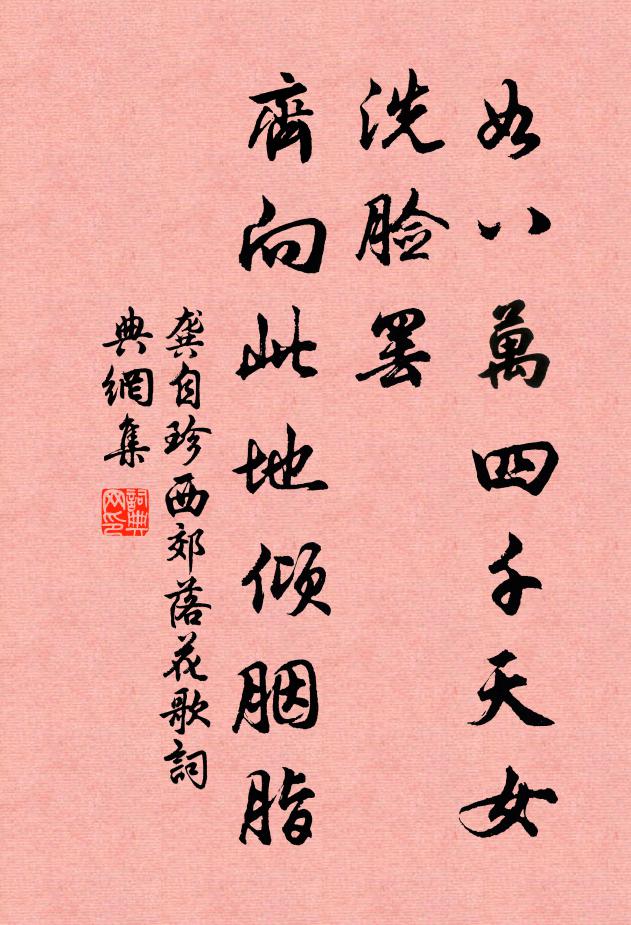 如八萬四千天女
洗脸罢
齊向此地傾胭脂
龔自珍西郊落花歌詞
典網集
詞典
网印